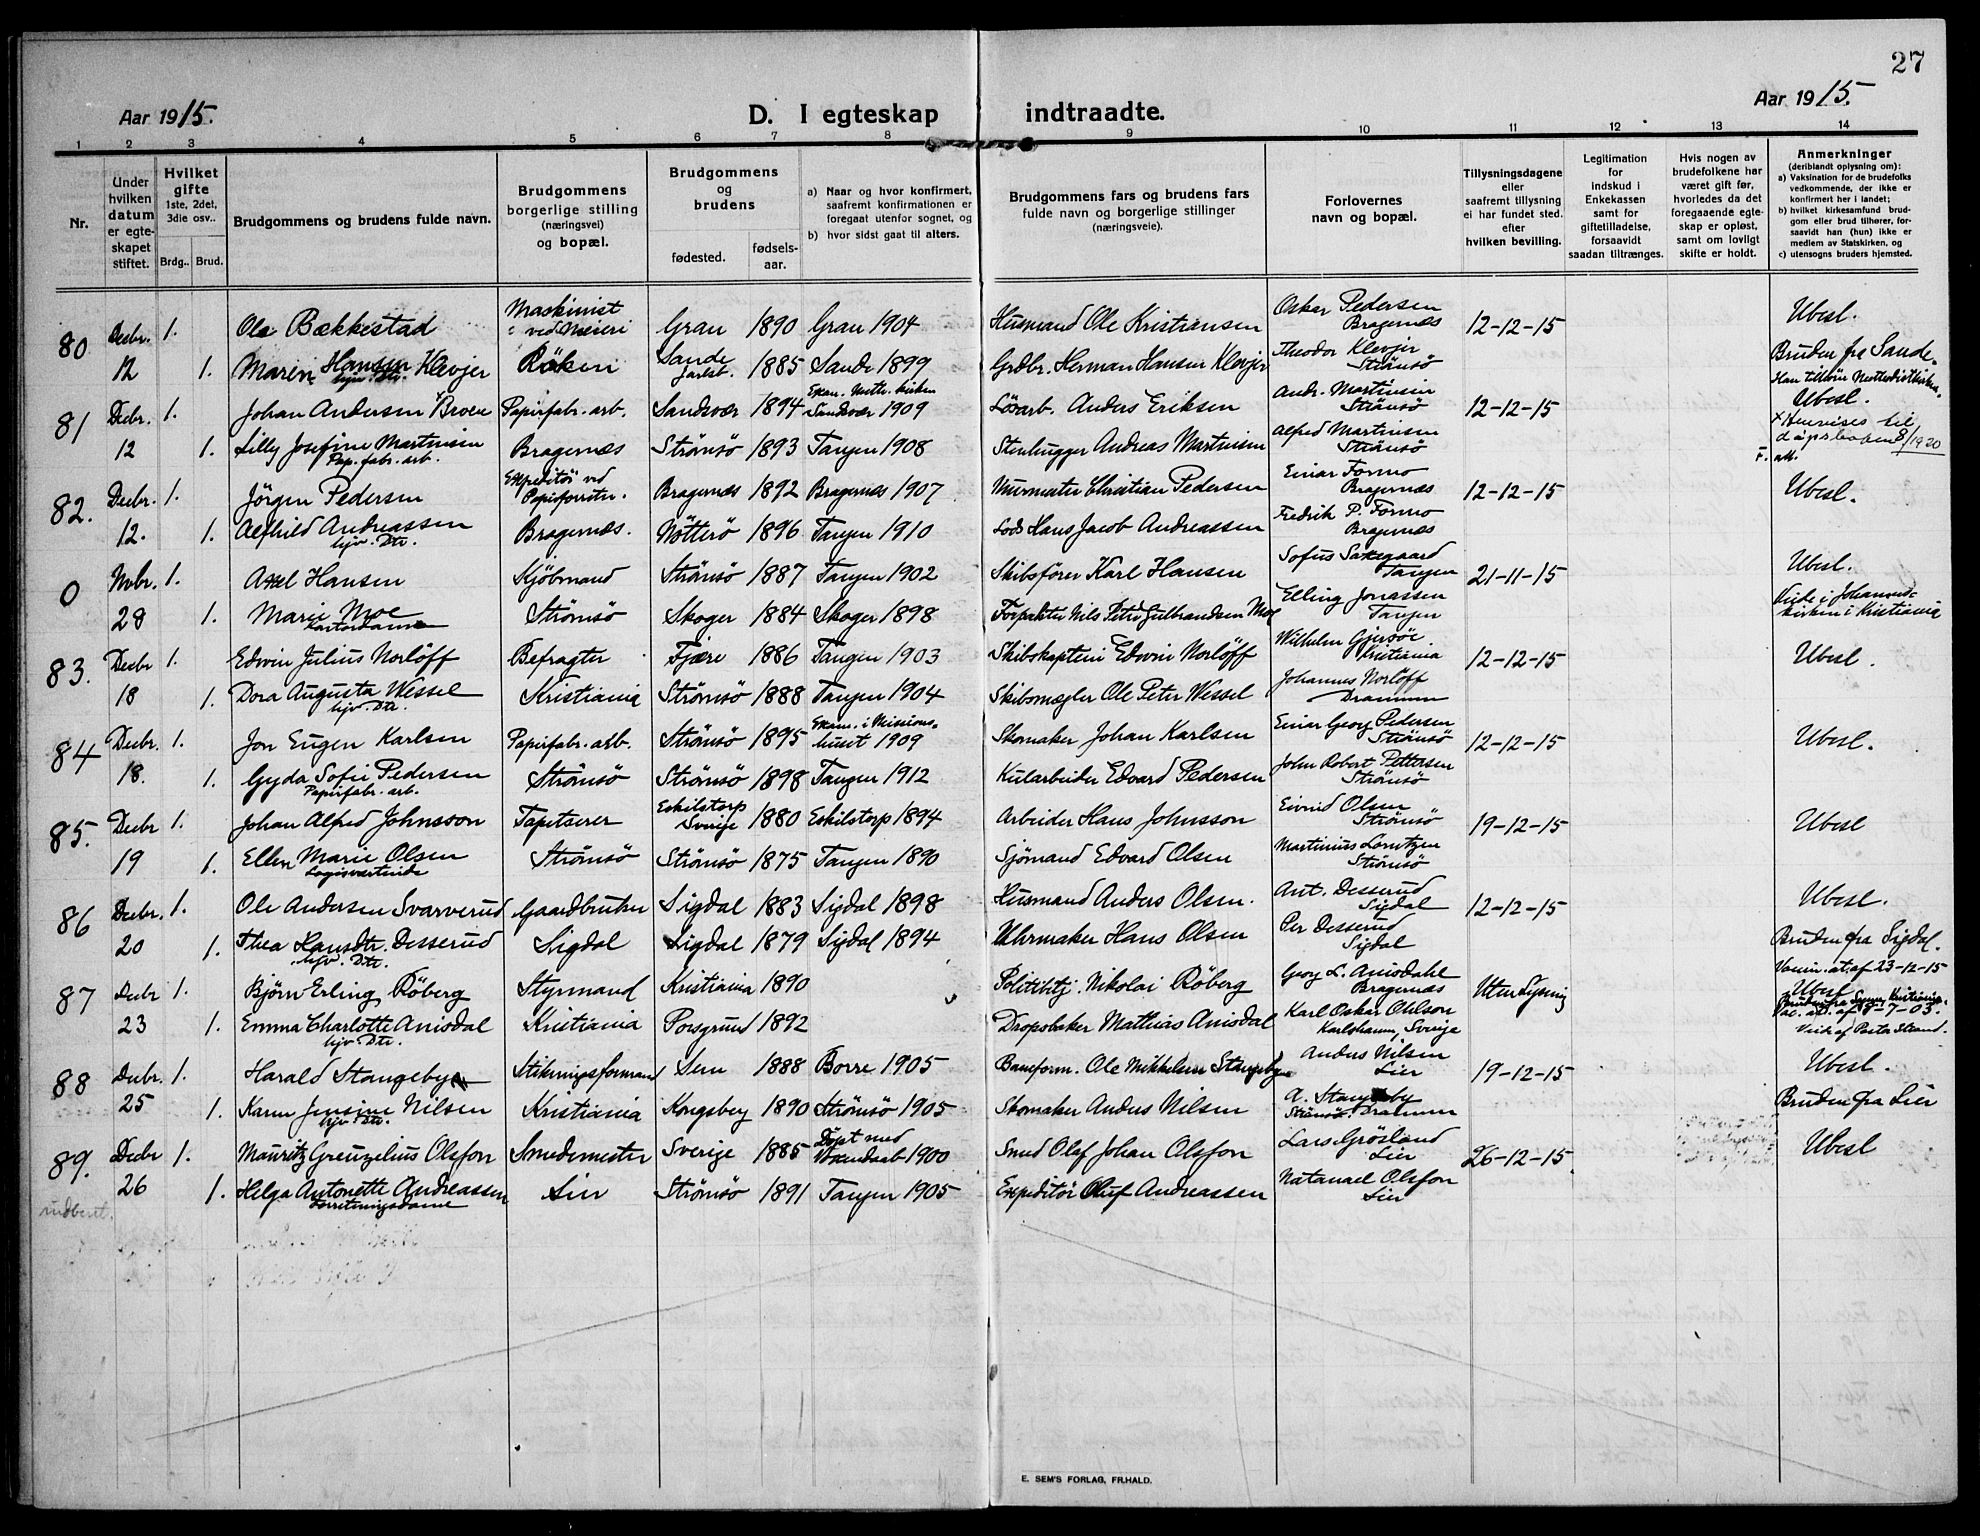 27
Aar 1915.
D. I egteskap indtraadte.
Aar 1915.
1 2 3 4 5 6 7 8 9 10 11 12 13 14
Nr.
Under hvilken datum er egte- skapet stiftet.
Hvilket gifte 1ste, 2det, 3die osv..
Brdg.. Brud.
Brudgommens og brudens fulde navn.
Brudgommens borgerlige stilling (næringsvei) og bopæl.
Brudgommens og brudens
fødested. fødsels- aar.
a) Naar og hvor konfirmert, saafremt konfirmationen er foregaat utenfor sognet, og
b) hvor sidst gaat til alters.
Brudgommens fars og brudens fars fulde navn og borgerlige stillinger (næringsveie).
Forlovernes navn og bopæl.
Tillysningsdagene eller saafremt tillysning ei har fundet sted. efter hvilken bevilling.
Legitimation for indskud i Enkekassen samt for giftetilladelse, forsaavidt saadan tiltrænges.
Hvis nogen av brudefolkene har været gift før, hvorledes da det foregaaende egte- skap er opløst, samt om lovligt skifte er holdt.
Anmerkninger (deriblandt oplysning om):
a) Vaksination for de brudefolks vedkommende, der ikke er konfirmert her i landet;
b) hvilket kirkesamfund brud- gom eller brud tilhører, for- saavidt han (hun) ikke er medlem av Statskirken, og
c) utensogns bruders hjemsted.
80 Decbr. 1. Ole Bækkestad Maskinist ved Meieri Gran 1890 Gran 1904 Husmand Ole Kristiansen Oskar Pedersen Bragernæs 12-12-15 Ubesl.
12 1. Maren Hansen Klevjer hjv. Dtr. Röken Sande Jarlsb. 1885 Sande 1899 Grdbr. Herman Hansen Klevjer Theodor Klevjer Strömsö Bruden fra Sande.
81 Decbr. 1. Johan Andersen Broen Papirfabr. arb. Sandsvær 1894 Sandsvær 1909 Lösarb. Anders Eriksen Andr. Martinsen Strömsö 12-12-15 Han tilhörer Methodistkirken. Ubesl.
12 1. Lilly Josefine Martinsen Pap. fabr. arb. Bragernæs Strömsö 1893 Tangen 1908 Stenhugger Andreas Martinsen Alfred Martinsen Strömsö × Henvises til dåpsboken 8/1920
F. att.
82. Decbr. 1. Jörgen Pedersen Expeditör ved Bragernæs 1892 Bragernæs 1907 Murmester Christian Pedersen Einar Formo Bragernæs 12-12-15 Ubesl.
12. 1. Alfhild Andreassen hjv. Dtr. Bragernæs. Nötterö 1896 Tangen 1910 Lods Hans Jacob Andreassen Fredrik P. Formo Bragernæs
0 Novbr. 1. Axel Hansen Kjöbmand Strömsö 1887 Tangen 1902 Skibsförer Karl Hansen Sofus Tangen 21-11-15 Ubesl.
28 1. Marie Moe Kontordame Strömsö Skoger 1884 Skoger 1898 Forpakter Nils Petter Gulbrandsen Moe Elling Jonassen Tangen Viede i Johannes- kirken i Kristiania
83. Decbr 1. Edwin Julius Norlöff Befragter Fjære 1886 Tangen 1903 Skibskaptein Edwin Norlöff Wilhelm Gjersöe Kristiania 12-12-15 Ubesl.
18 1. Dora Augusta Wessel hjv. Dtr. Kristiania Strömsö 1888 Tangen 1904 Skibsmægler Ole Peter Wessel Johannes Norlöff Drammen
84 Decbr. 1. Jon Eugen Karlsen Papirfabr. arb. Strömsö 1895 Exam. i Missions- huset 1909 Skomaker Johan Karlsen Einar Georg Pedersen Strömsö 12-12-15 Ubesl.
18. 1. Gyda Sofie Pedersen Papirfabr. arb. Strömsö Strömsö 1898 Tangen 1912 Kularbeider Edvard Pedersen John Robert Pettersen Strömsö
85. Decbr 1. Johan Alfred Johnsson Tapetserer Eskilstorp Sverige 1880 Eskilstorp 1894 Arbeider Hans Johnsson Eivind Olsen Strömsö 19-12-15 Ubesl
19 1. Ellen Marie Olsen Logisvertinde Strömsö Strömsö 1875 Tangen 1890 Sjömand Edvard Olsen Martinius Lorntzen Strömsö
86 Decbr. 1. Ole Andersen Svarverud Gaardbruker Sigdal 1883 Sigdal 1898 Husmand Anders Olsen. Ant. Desserud Sigdal 12-12-15 Ubesl.
20 1. Thea Hansdtr. Desserud hjv. Dtr. Sigdal Sigdal 1879 Sigdal 1894 Uhrmaker Hans Olsen Per Desserud Sigdal Bruden fra Sigdal.
87 Decbr 1. Bjørn Erling Röberg Styrmand Kristiania 1890 Politibtj. Nikolai Röberg Georg L. Amsdahl Bragernæs Uten Lysning Vaccin. at. af 23-12-15 Ubesl
23 1. Emma Charlotte Amsdal hjv Dtr. Kristiania Porsgrund 1892 Dropsbaker Mathias Amsdal Karl Oskar Ohlson Karlshamn, Sverige Vac. at. af 8-7-03. Viet af Pastor Strand.
88 Decbr. 1. Harald Stangeby Stikningsformand Sem 1888 Borre 1905 Baneform. Ole Mikkelsen Stangeby Anders Nilsen Lier 19-12-15 Ubesl.
25 1. Karen Jensine Nilsen hjv Dtr. Kristiania Kongsberg 1890 Strömsö 1905 Skomaker Anders Nilsen A. Stangeby Strömsö. Drammen Bruden fra Lier
89. Decbr 1. Mauritz Greuzelius Olsson Smedemester Sverige 1885 Döpt med 1900 Smed Olof Johan Olsson Lars Grösland Lier 26-12-15 Ubesl
26 1. Helga Antonette Andreassen Forretningsdame Lier Strömsö 1891 Tangen 1905 Expeditör Oluf Andreassen Natanael Olsson Lier
indberet.
E. SEM'S FORLAG, FR.HALD.